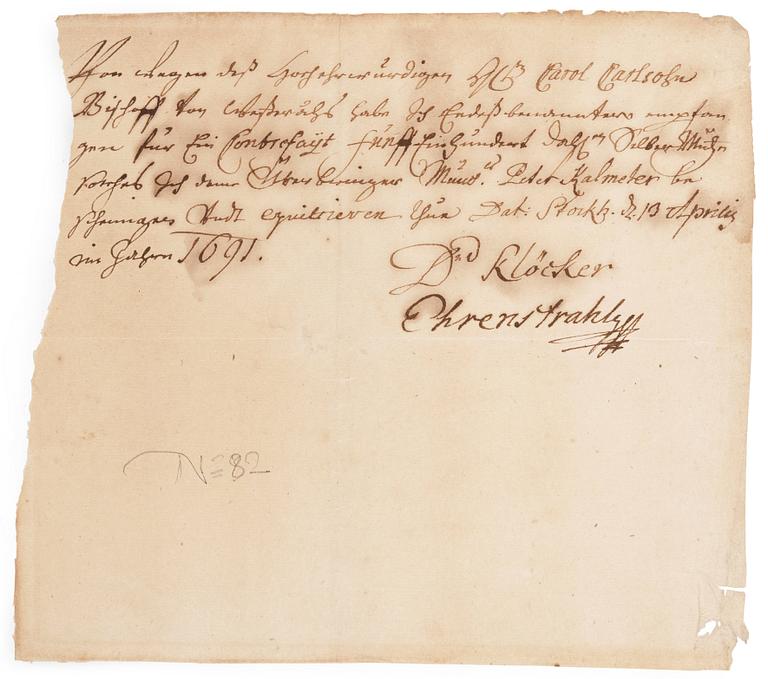 Von wegen deß Hochehrwürdigen H. Carol Carlsohn
Bischoff von Weßeruhs habe Ich Endeßbenannter empfan
gen für Ein Contrefayt fünff Einhundert Dahl. Silber Müntz
solches Ich dem Überbringer Peter Kalmeter be
scheinigen Undt quitieren thue Dat: Stockh. d. 13 Aprilis
im Jahre 1691.
Dvd Klöcker
Ehrenstrahl
No 82